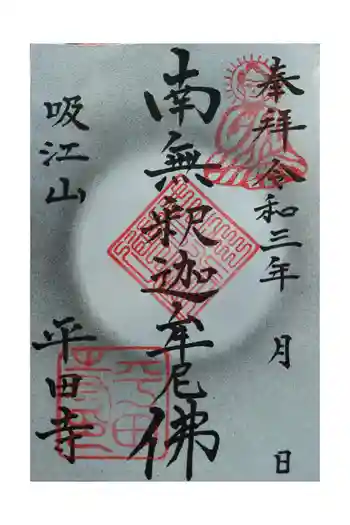 奉拝 令和三年 月 日
南無釈迦牟尼佛
吸江山 平田寺